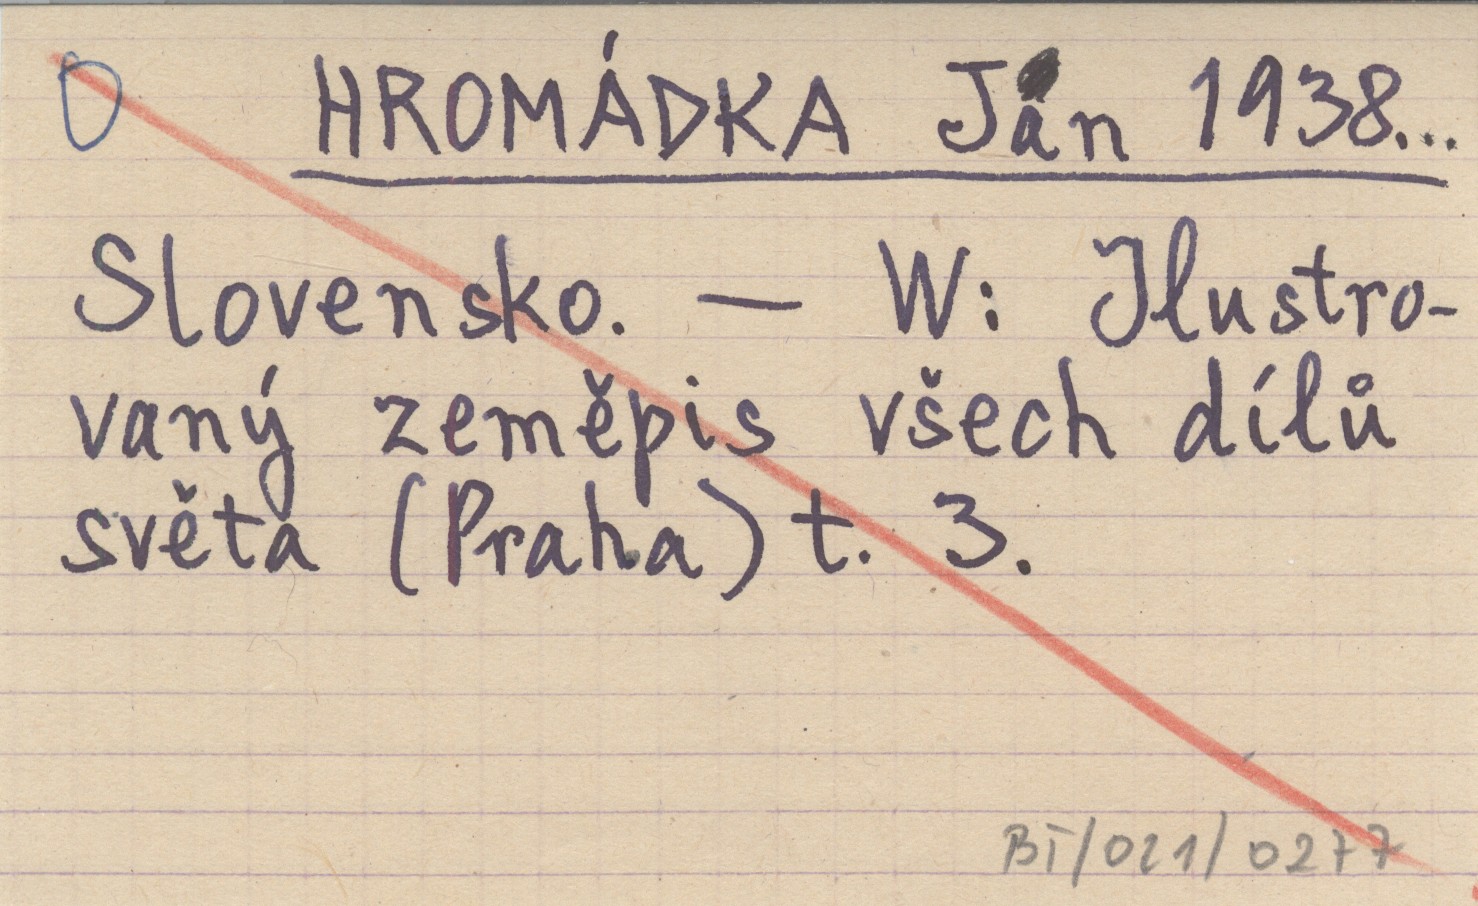 O HROMÁDKA Jan 1938...
Slovensko. — W: Ilustro-
vaný zeměpis všech dílů
světa (Praha) t. 3.
BT/021/0277